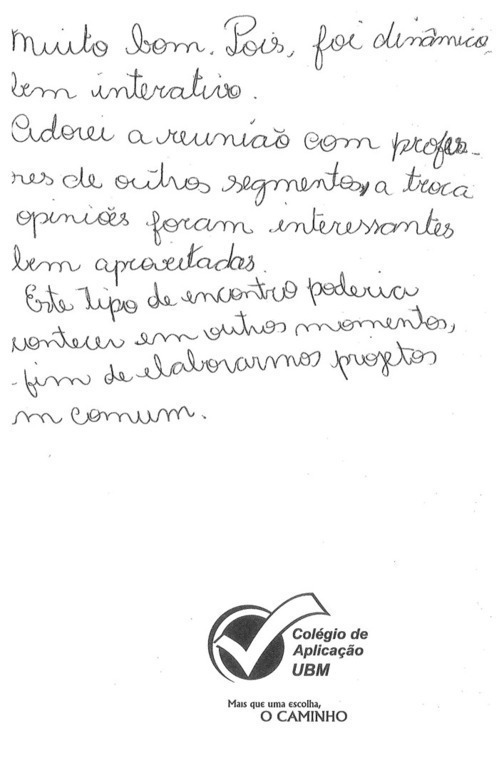 Muito bom. Pois, foi dinâmico,
bem interativo.
Adorei a reunião com profes-
res de outros segmentos, a troca
opiniões foram interessantes
bem aproveitadas.
Este tipo de encontro poderia
contecer em outros momentos,
fim de elaborarmos projetos
m comum.
Colégio de
Aplicação
UBM
Mais que uma escolha,
O CAMINHO